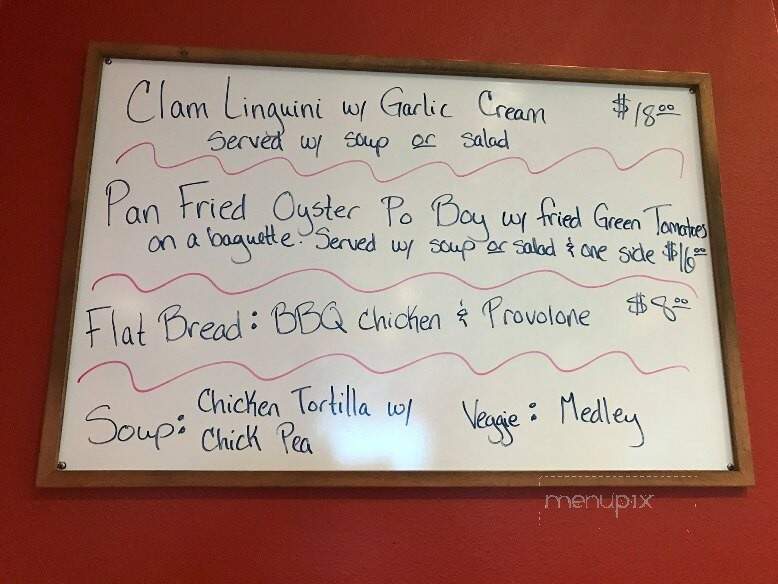 Clam Linguini w/ Garlic Cream $18.00
Served w/ soup or salad
Pan Fried Oyster Po Boy w/ fried Green Tomatoes
on a baguette. Served w/ soup or salad & one side $16.00
Flat Bread: BBQ Chicken & Provolone $8.00
Soup: Chicken Tortilla w/ Veggie: Medley
Chick Pea
menupix